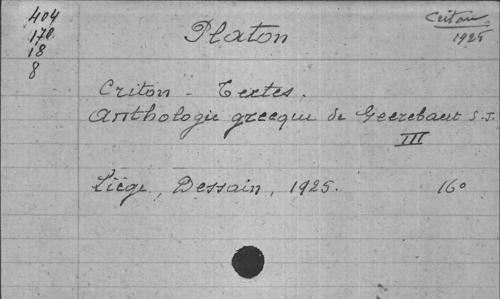 404
178
18
8
Criton
1925
Platon
Criton - Textes.
Anthologie grecque de Geerebaert S.J.
III
Liége, Dessain, 1925. 16°